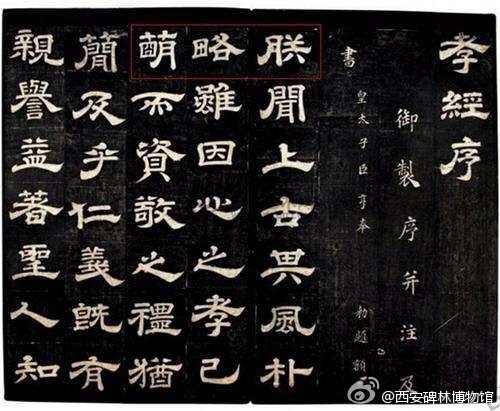 孝經序
御製序并注及
書
皇太子臣亨奉　勅題額
朕聞上古其風朴
略雖因心之孝已
萌而資敬之禮猶
簡及乎仁義既有
親譽益著聖人知
@西安碑林博物馆